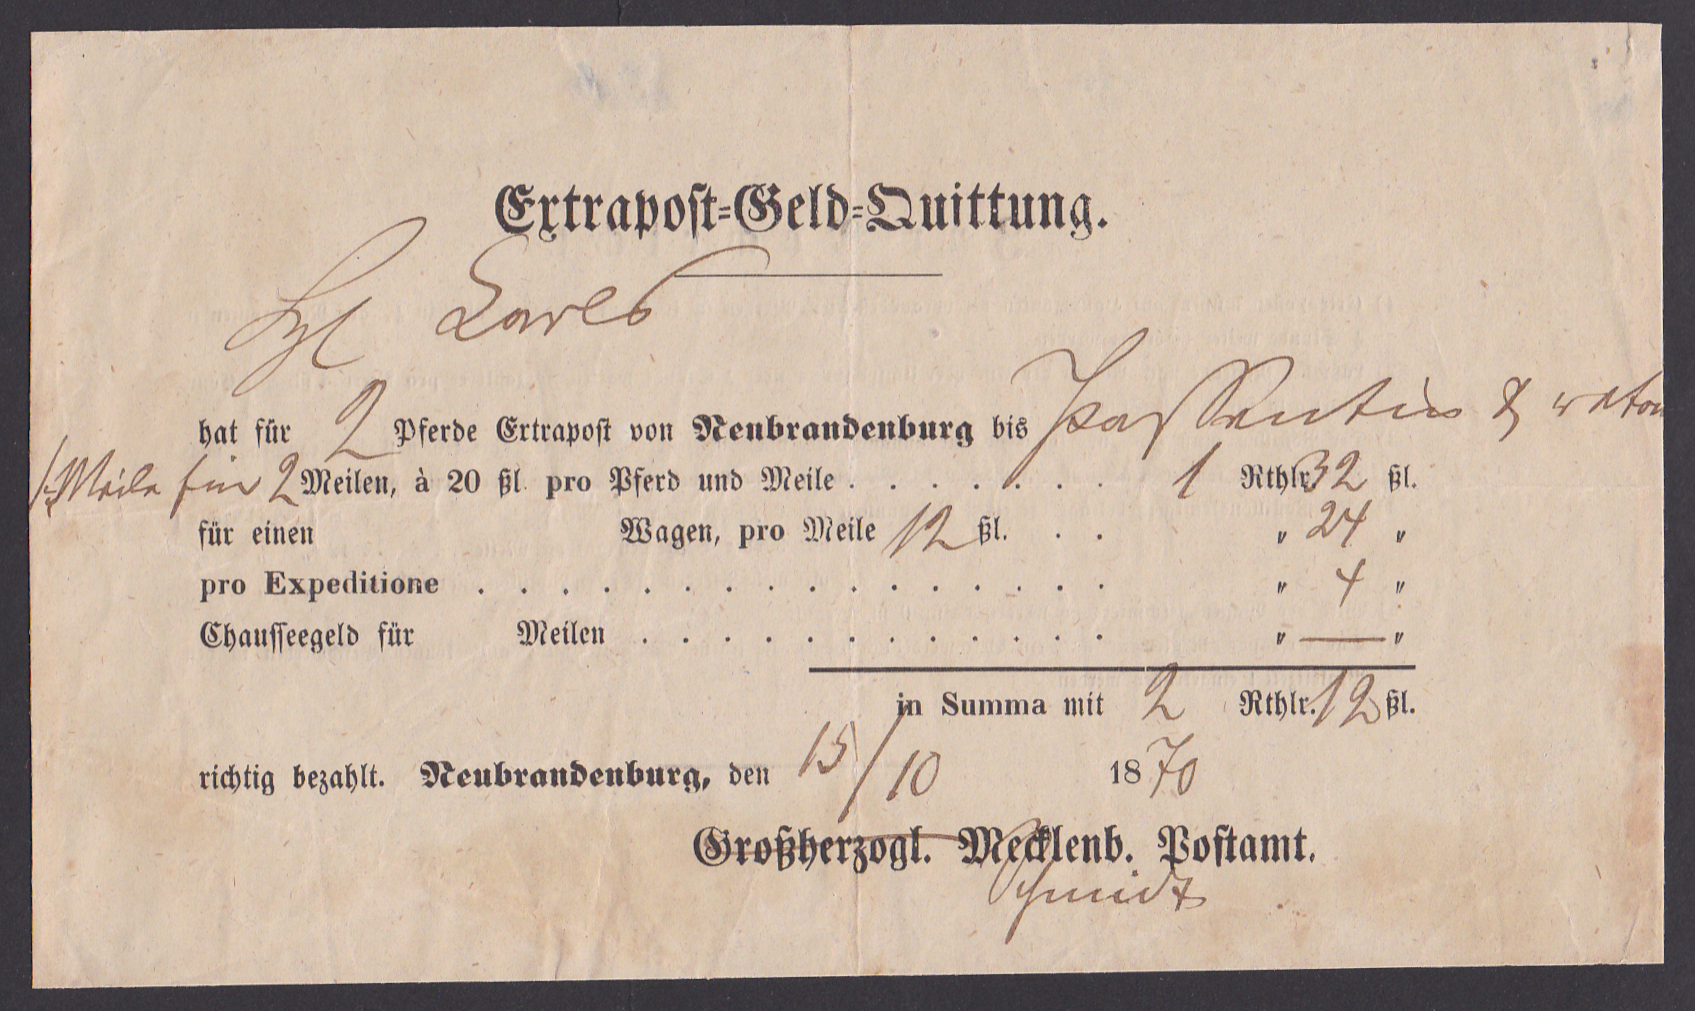 Extrapost-Geld-Quittung.
Hl Carls
hat für 2 Pferde Extrapost von Neubrandenburg bis Passentin & retou
Meile für 2 Meilen, à 20 ßl. pro Pferd und Meile . . . . . . . 1 Rthlr. 32 ßl.
für einen Wagen, pro Meile 12 ßl. . . " 24 "
pro Expeditione . . . . . . . . . . . . . . . . " 4 "
Chausseegeld für Meilen . . . . . . . . . . . . " — "
in Summa mit 2 Rthlr. 12 ßl.
richtig bezahlt. Neubrandenburg, den 15/10 1870
Großherzogl. Mecklenb. Postamt.
Schmidt